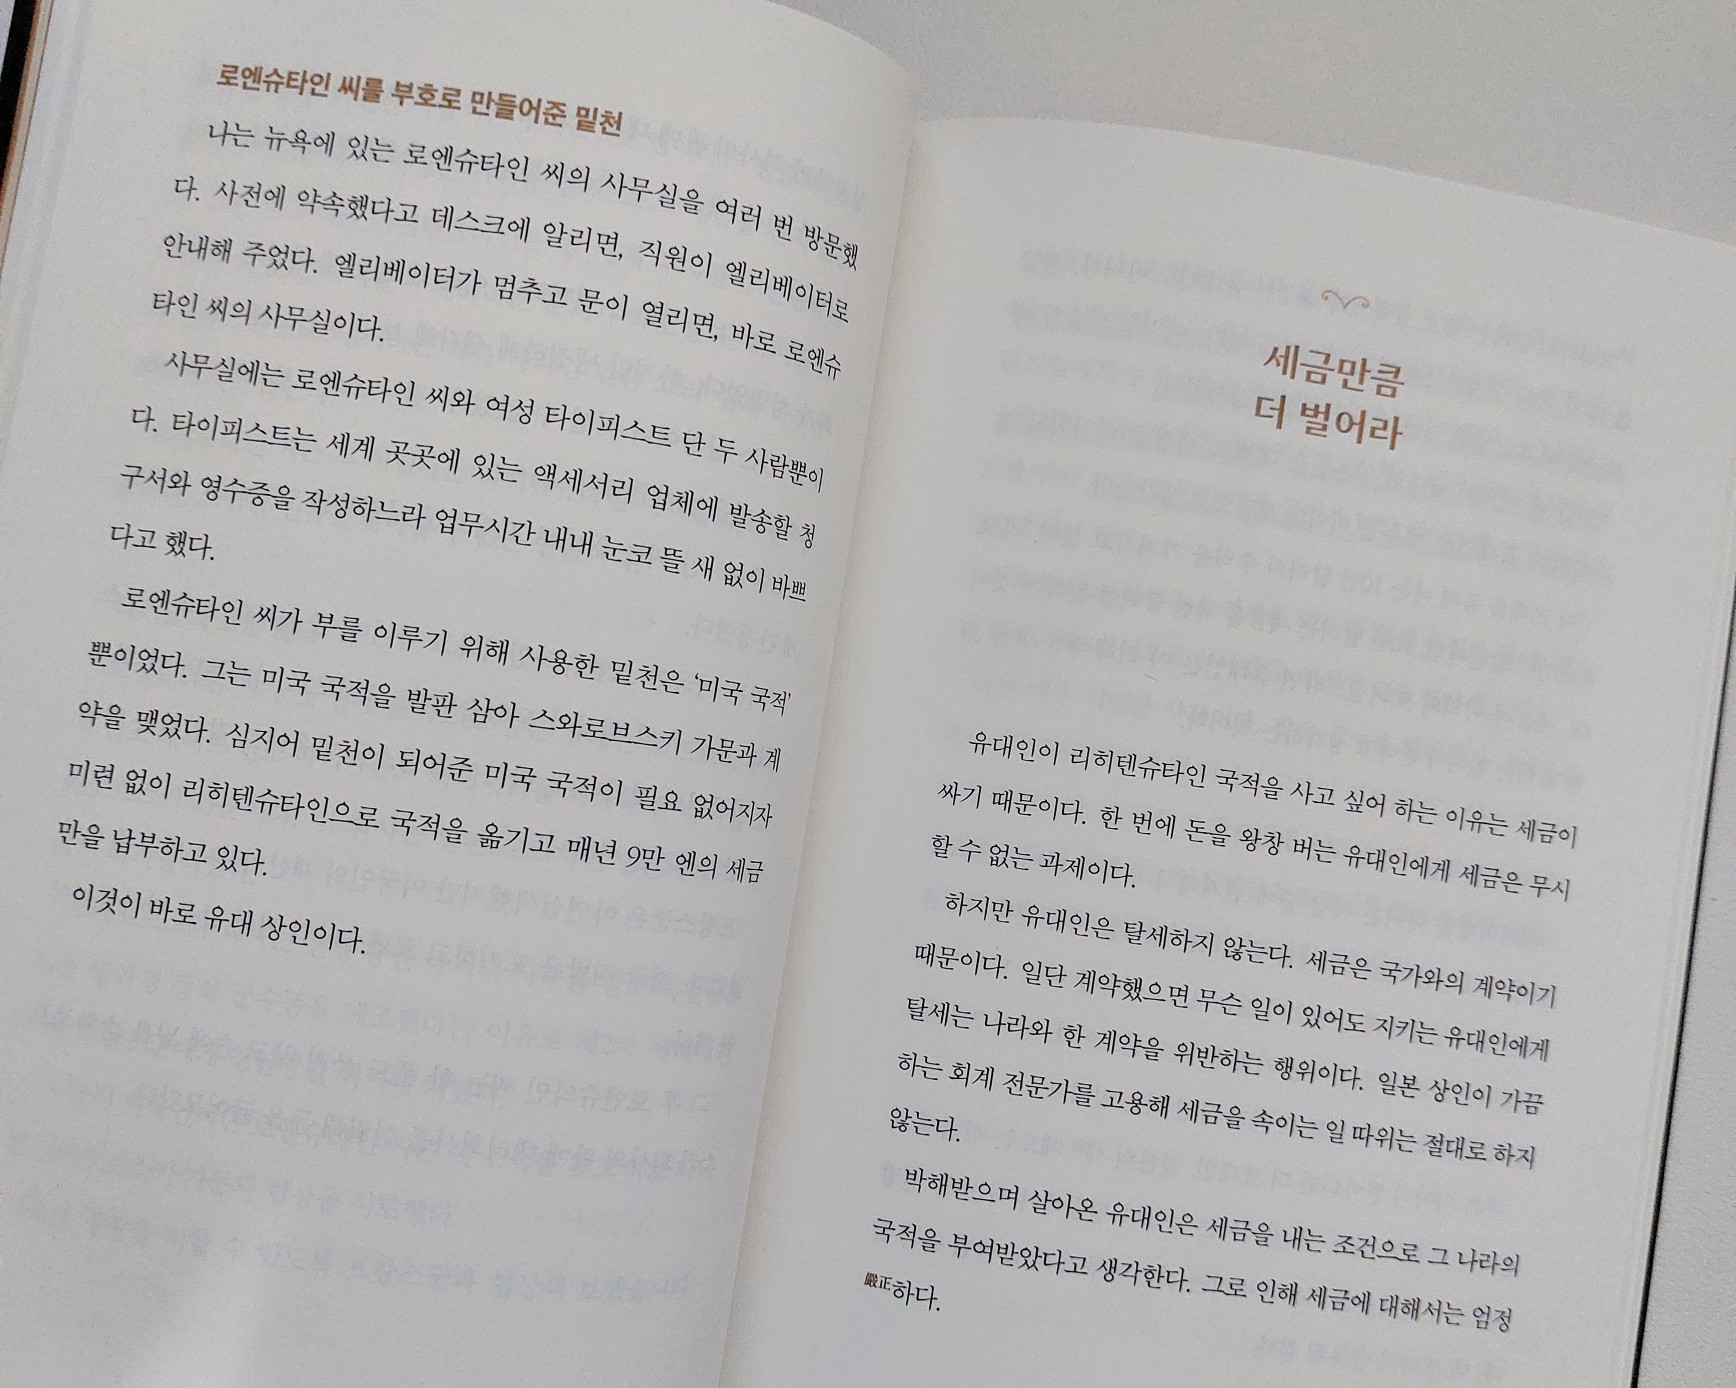 로엔슈타인 씨를 부호로 만들어준 밑천
나는 뉴욕에 있는 로엔슈타인 씨의 사무실을 여러 번 방문했
다. 사전에 약속했다고 데스크에 알리면, 직원이 엘리베이터로
안내해 주었다. 엘리베이터가 멈추고 문이 열리면, 바로 로엔슈
타인 씨의 사무실이다.
사무실에는 로엔슈타인 씨와 여성 타이피스트 단 두 사람뿐이
다. 타이피스트는 세계 곳곳에 있는 액세서리 업체에 발송할 청
구서와 영수증을 작성하느라 업무시간 내내 눈코 뜰 새 없이 바쁘
다고 했다.
로엔슈타인 씨가 부를 이루기 위해 사용한 밑천은 ‘미국 국적’
뿐이었다. 그는 미국 국적을 발판 삼아 스와로브스키 가문과 계
약을 맺었다. 심지어 밑천이 되어준 미국 국적이 필요 없어지자
미련 없이 리히텐슈타인으로 국적을 옮기고 매년 9만 엔의 세금
만을 납부하고 있다.
이것이 바로 유대 상인이다.
세금만큼
더 벌어라
유대인이 리히텐슈타인 국적을 사고 싶어 하는 이유는 세금이
싸기 때문이다. 한 번에 돈을 왕창 버는 유대인에게 세금은 무시
할 수 없는 과제이다.
하지만 유대인은 탈세하지 않는다. 세금은 국가와의 계약이기
때문이다. 일단 계약했으면 무슨 일이 있어도 지키는 유대인에게
탈세는 나라와 한 계약을 위반하는 행위이다. 일본 상인이 가끔
하는 회계 전문가를 고용해 세금을 속이는 일 따위는 절대로 하지
않는다.
박해받으며 살아온 유대인은 세금을 내는 조건으로 그 나라의
국적을 부여받았다고 생각한다. 그로 인해 세금에 대해서는 엄정
嚴正하다.